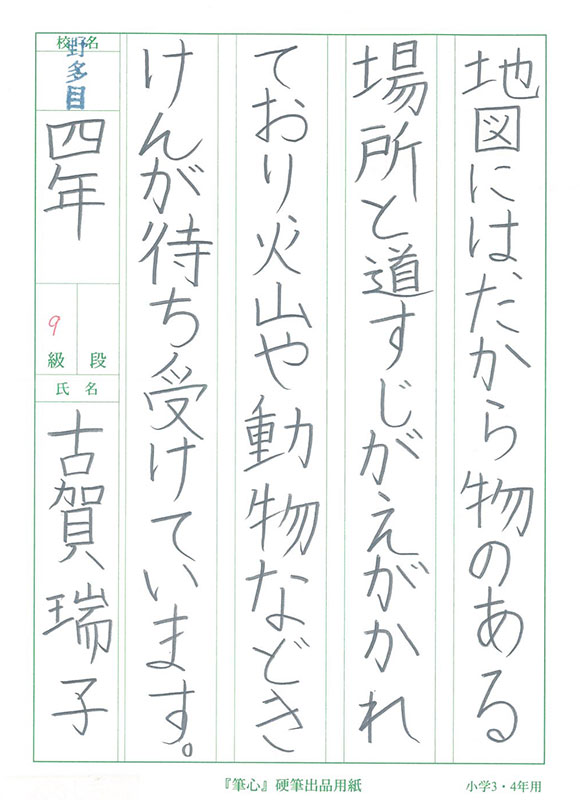 地図には、たから物のある
場所と道すじがえがかれ
ており、火山や動物などき
けんが待ち受けています。
校名
野多目
四年
9
級 段
氏 名
古賀瑞子
『筆心』硬筆出品用紙
小学3・4年用